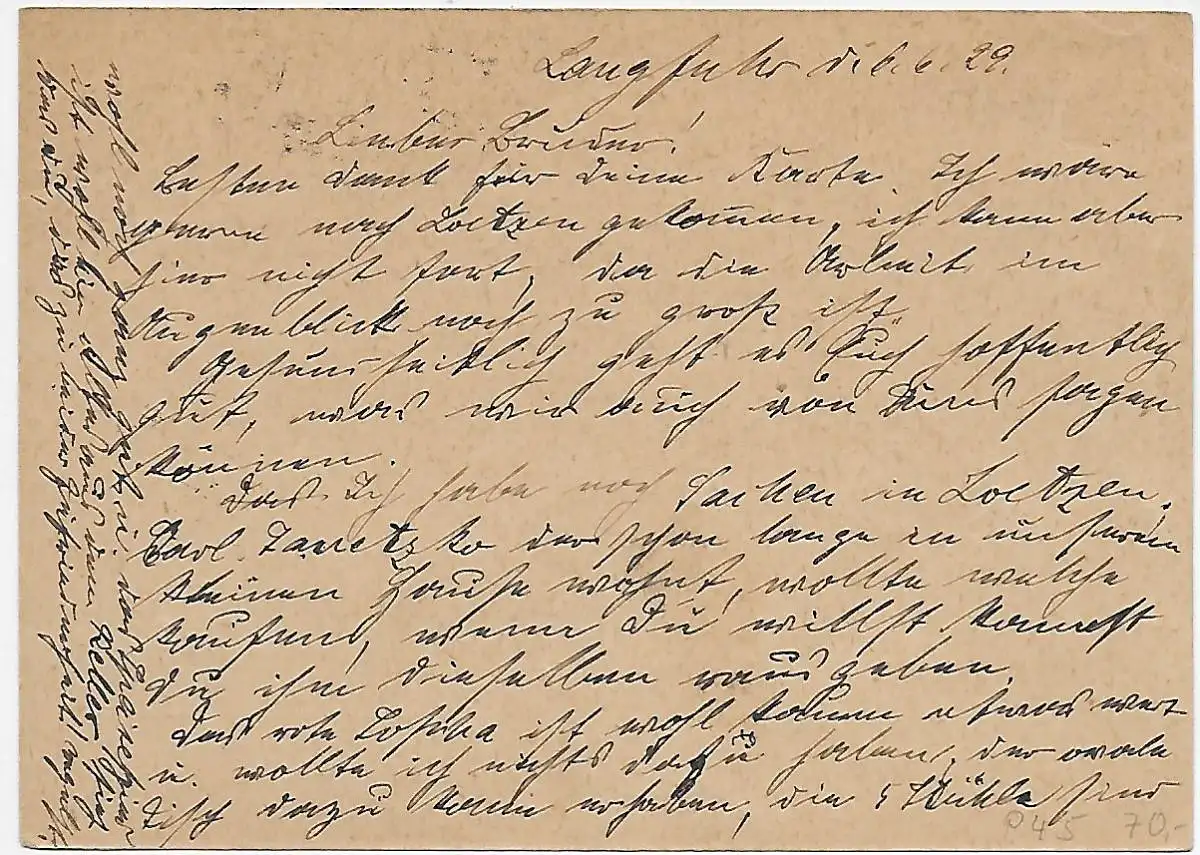 Langfuhr d. 6. 6. 29.
Lieber Bruder!
Besten Dank für Deine Karte. Ich wäre
gerne nach Loetzen gekommen, ich kann aber
hier nicht fort, da die Arbeit im
Augenblick noch zu groß ist.
Gesundheitlich geht es Euch hoffentlich
gut, was wir auch von uns sagen
können.
Ich habe noch Sachen in Loetzen.
Karl der schon lange in unserem
kleinen Hause wohnt, wollte welche
kaufen, wenn Du willst kannst
Du ihm dieselben rausgeben.
Das rote Sofha ist wohl kaum etwas wert
u. wollte ich nichts dafür haben, der ovale
Tisch dazu kann er haben, die Stühle sind
wohl noch ganz gut u. das
ist wohl aus dem Keller
Du, das zu
P45 70,-